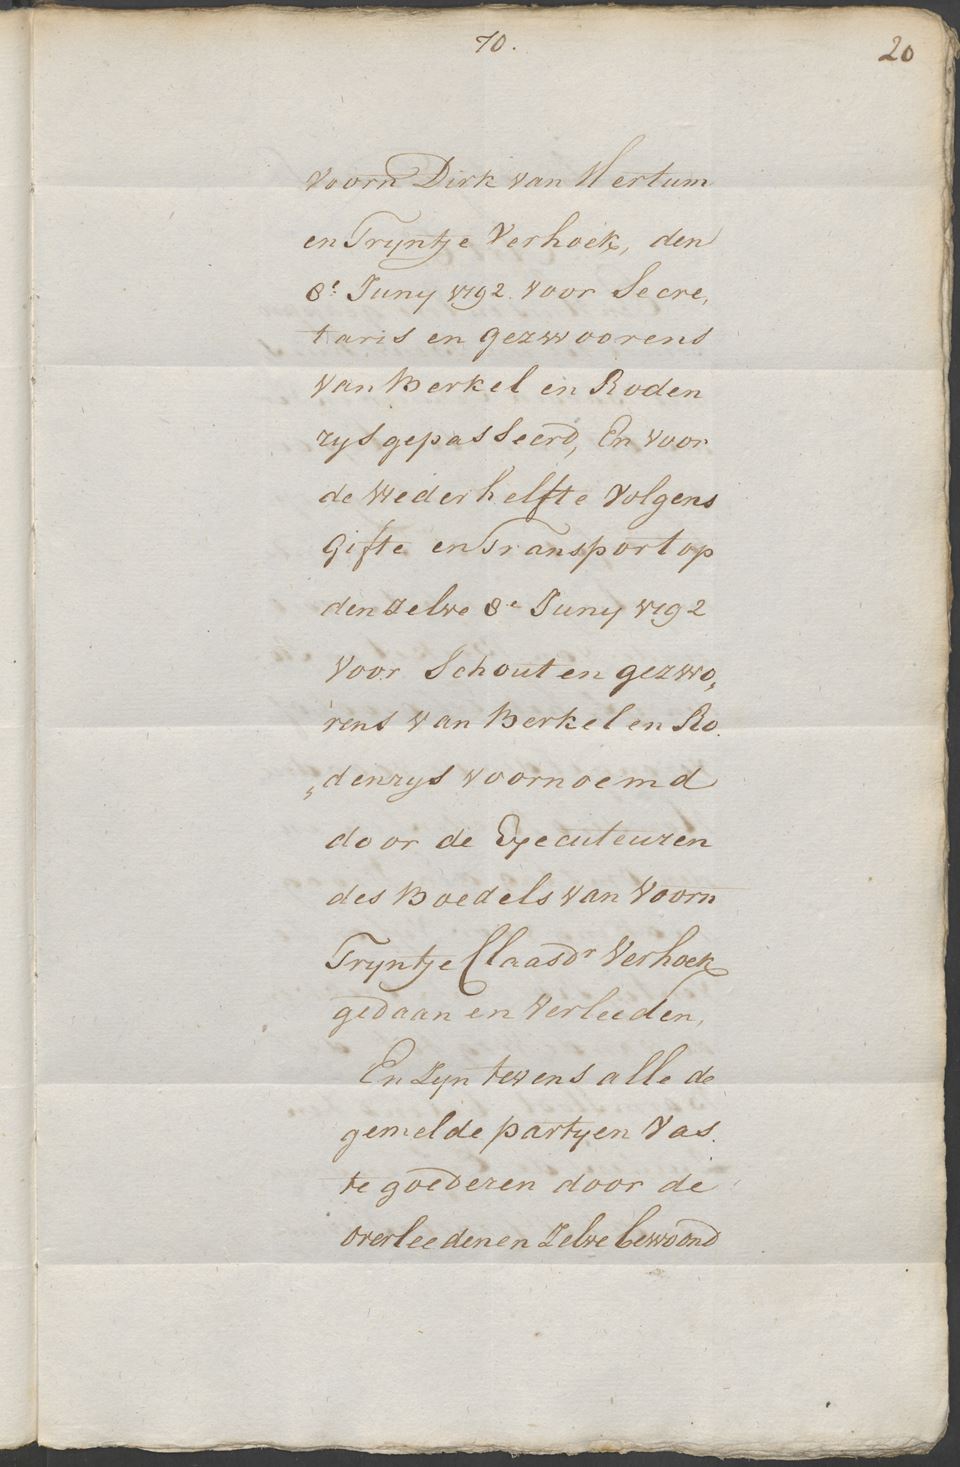 70.
20
Voorn Dirk van Hertum
en Tryntje Verhoek, den
8e Juny 1792. Voor Secre,
taris en gezwoorens
van Berkel en Roden
rys gepasseerd, En voor
de Wederhelfte Volgens
Gifte en Transport op
den zelve 8e Juny 1792
Voor Schout en gezwo„
rens van Berkel en Ro.
„denrys voornoemd
door de Executeuren
des Boedels van Voorn
Tryntje Claasdr Verhoek
gedaan en verleeden,
En zyn tevens alle de
gemelde partyen Vas.
te goederen door de
overleedenen zelve bewoond